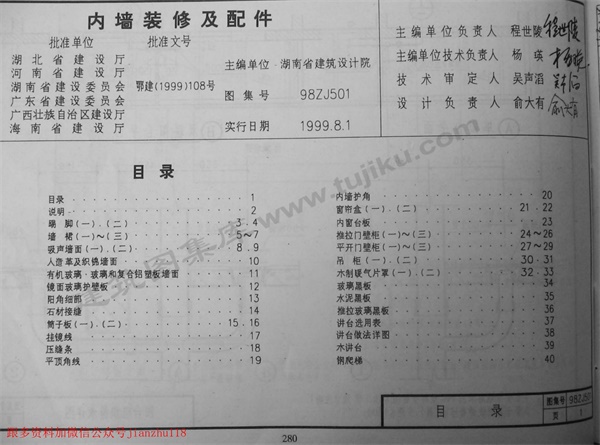 内墙装修及配件
批准单位 批准文号
湖北省建设厅
河南省建设厅
湖南省建设委员会 鄂建(1999)108号
广东省建设委员会
广西壮族自治区建设厅
海南省建设厅
主编单位 湖南省建筑设计院
图集号 98ZJ501
实行日期 1999.8.1
主编单位负责人 程世陵
主编单位技术负责人 杨瑛
技术审定人 吴声滔
设计负责人 俞大有
目录
目录 1
说明 2
踢脚(一).(二) 3.4
墙裙(一)~(三) 5~7
吸声墙面(一).(二) 8.9
人造革及织锦墙面 10
有机玻璃·玻璃和复合铝塑板墙面 11
镜面玻璃护壁板 12
阳角细部 13
石材接缝 14
筒子板(一).(二) 15.16
挂镜线 17
压缝条 18
平顶角线 19
内墙护角 20
窗帘盒(一).(二) 21.22
内窗台板 23
推拉门壁柜(一)~(三) 24~26
平开门壁柜(一)~(三) 27~29
吊柜(一).(二) 30.31
木制暖气片罩(一).(二) 32.33
玻璃黑板 34
水泥黑板 35
推拉玻璃黑板 36
讲台选用表 37
讲台做法详图 38
木讲台 39
钢爬梯 40
目录
图集号 98ZJ501
页 1
280
www.tujiku.com
建筑图集库
跟多资料加微信公众号jianzhu118